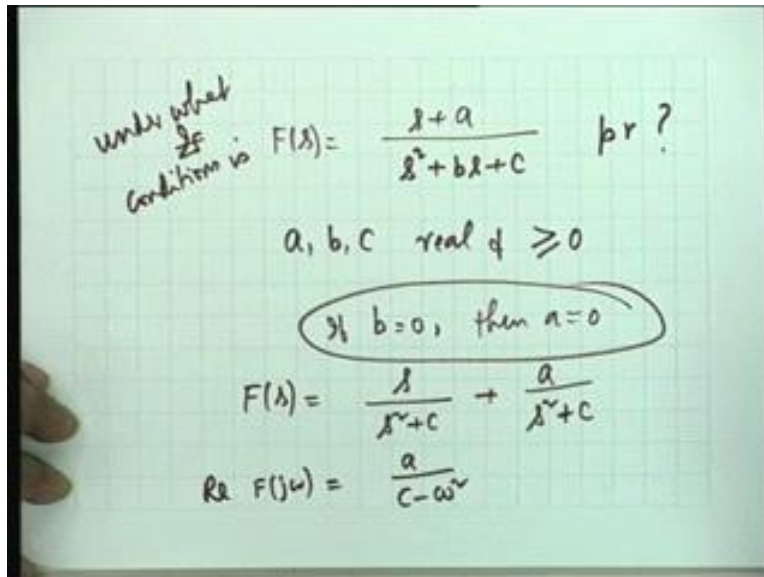 under what
conditions is F(s) = (s + a) / (s² + bs + c) pr ?
a, b, c real & ≥ 0
If b = 0, then a = 0
F(s) = s / (s² + c) + a / (s² + c)
Re F(jω) = a / (c - ω²)